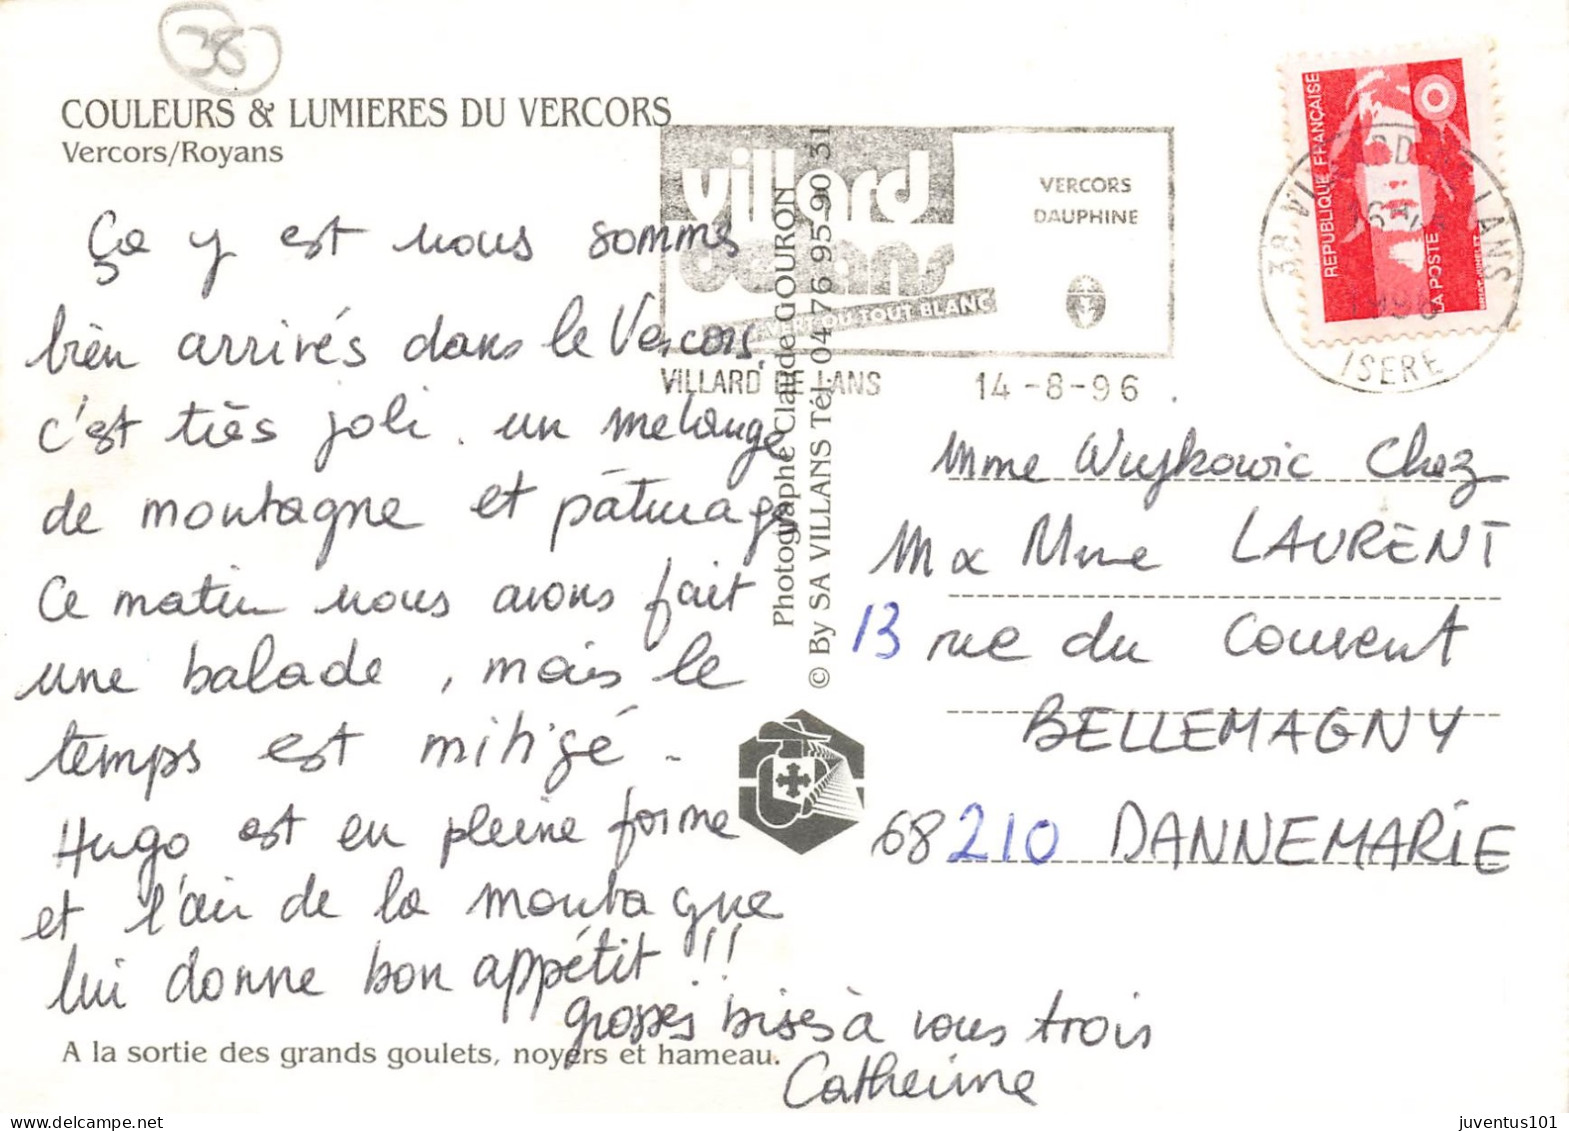 38
COULEURS & LUMIERES DU VERCORS
Vercors/Royans
Ça y est nous sommes
bien arrivés dans le Vercors.
c'est très joli. un mélange
de montagne et pâturage
Ce matin nous avons fait
une balade, mais le
temps est mitigé.
Hugo est en pleine forme
et l'air de la montagne
lui donne bon appétit !!
grosses bises à vous trois
Catherine
A la sortie des grands goulets, noyers et hameau.
Photographe Claude GOURON
© By SA VILLANS Tél. 04 76 95 90 31
villard
de lans
VERT OU TOUT BLANC
VERCORS
DAUPHINE
VILLARD DE LANS 14-8-96
REPUBLIQUE FRANÇAISE
LA POSTE
38 VILLARD DE LANS
ISERE
Mme Wujkowic Chez
M & Mme LAURENT
13 rue du Couvent
BELLEMAGNY
68210 DANNEMARIE
juventus101